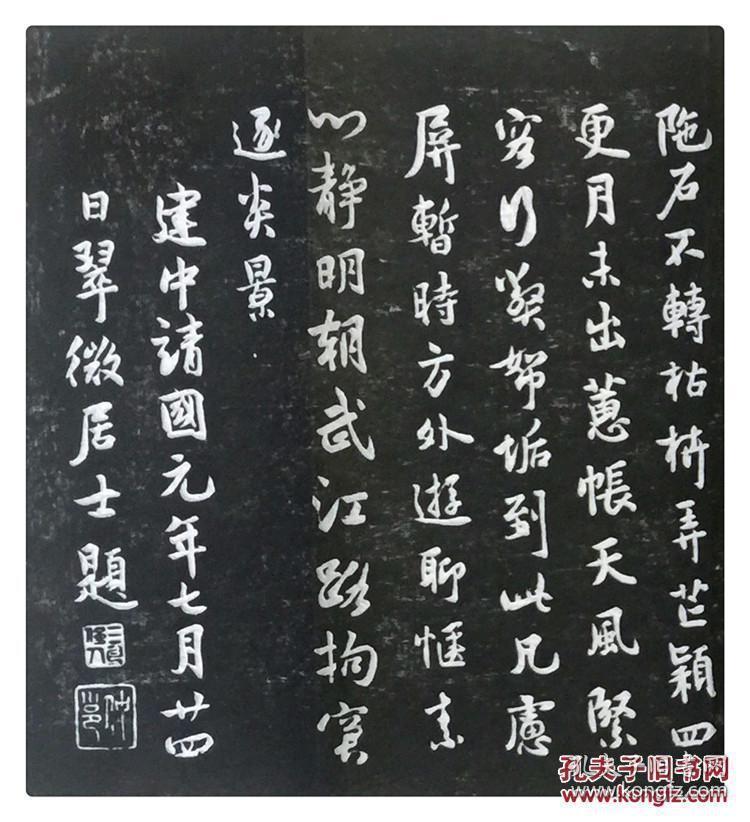 陁石不轉枯枿弄芒穎四
更月未出蕙帳天風緊
行垢到此凡慮
屏暫時方外遊聊愜素
心静明朝武江路拘窘
逐炎景
建中靖國元年七月廿四
日翠微居士題
孔夫子旧书网
www.kongfz.com